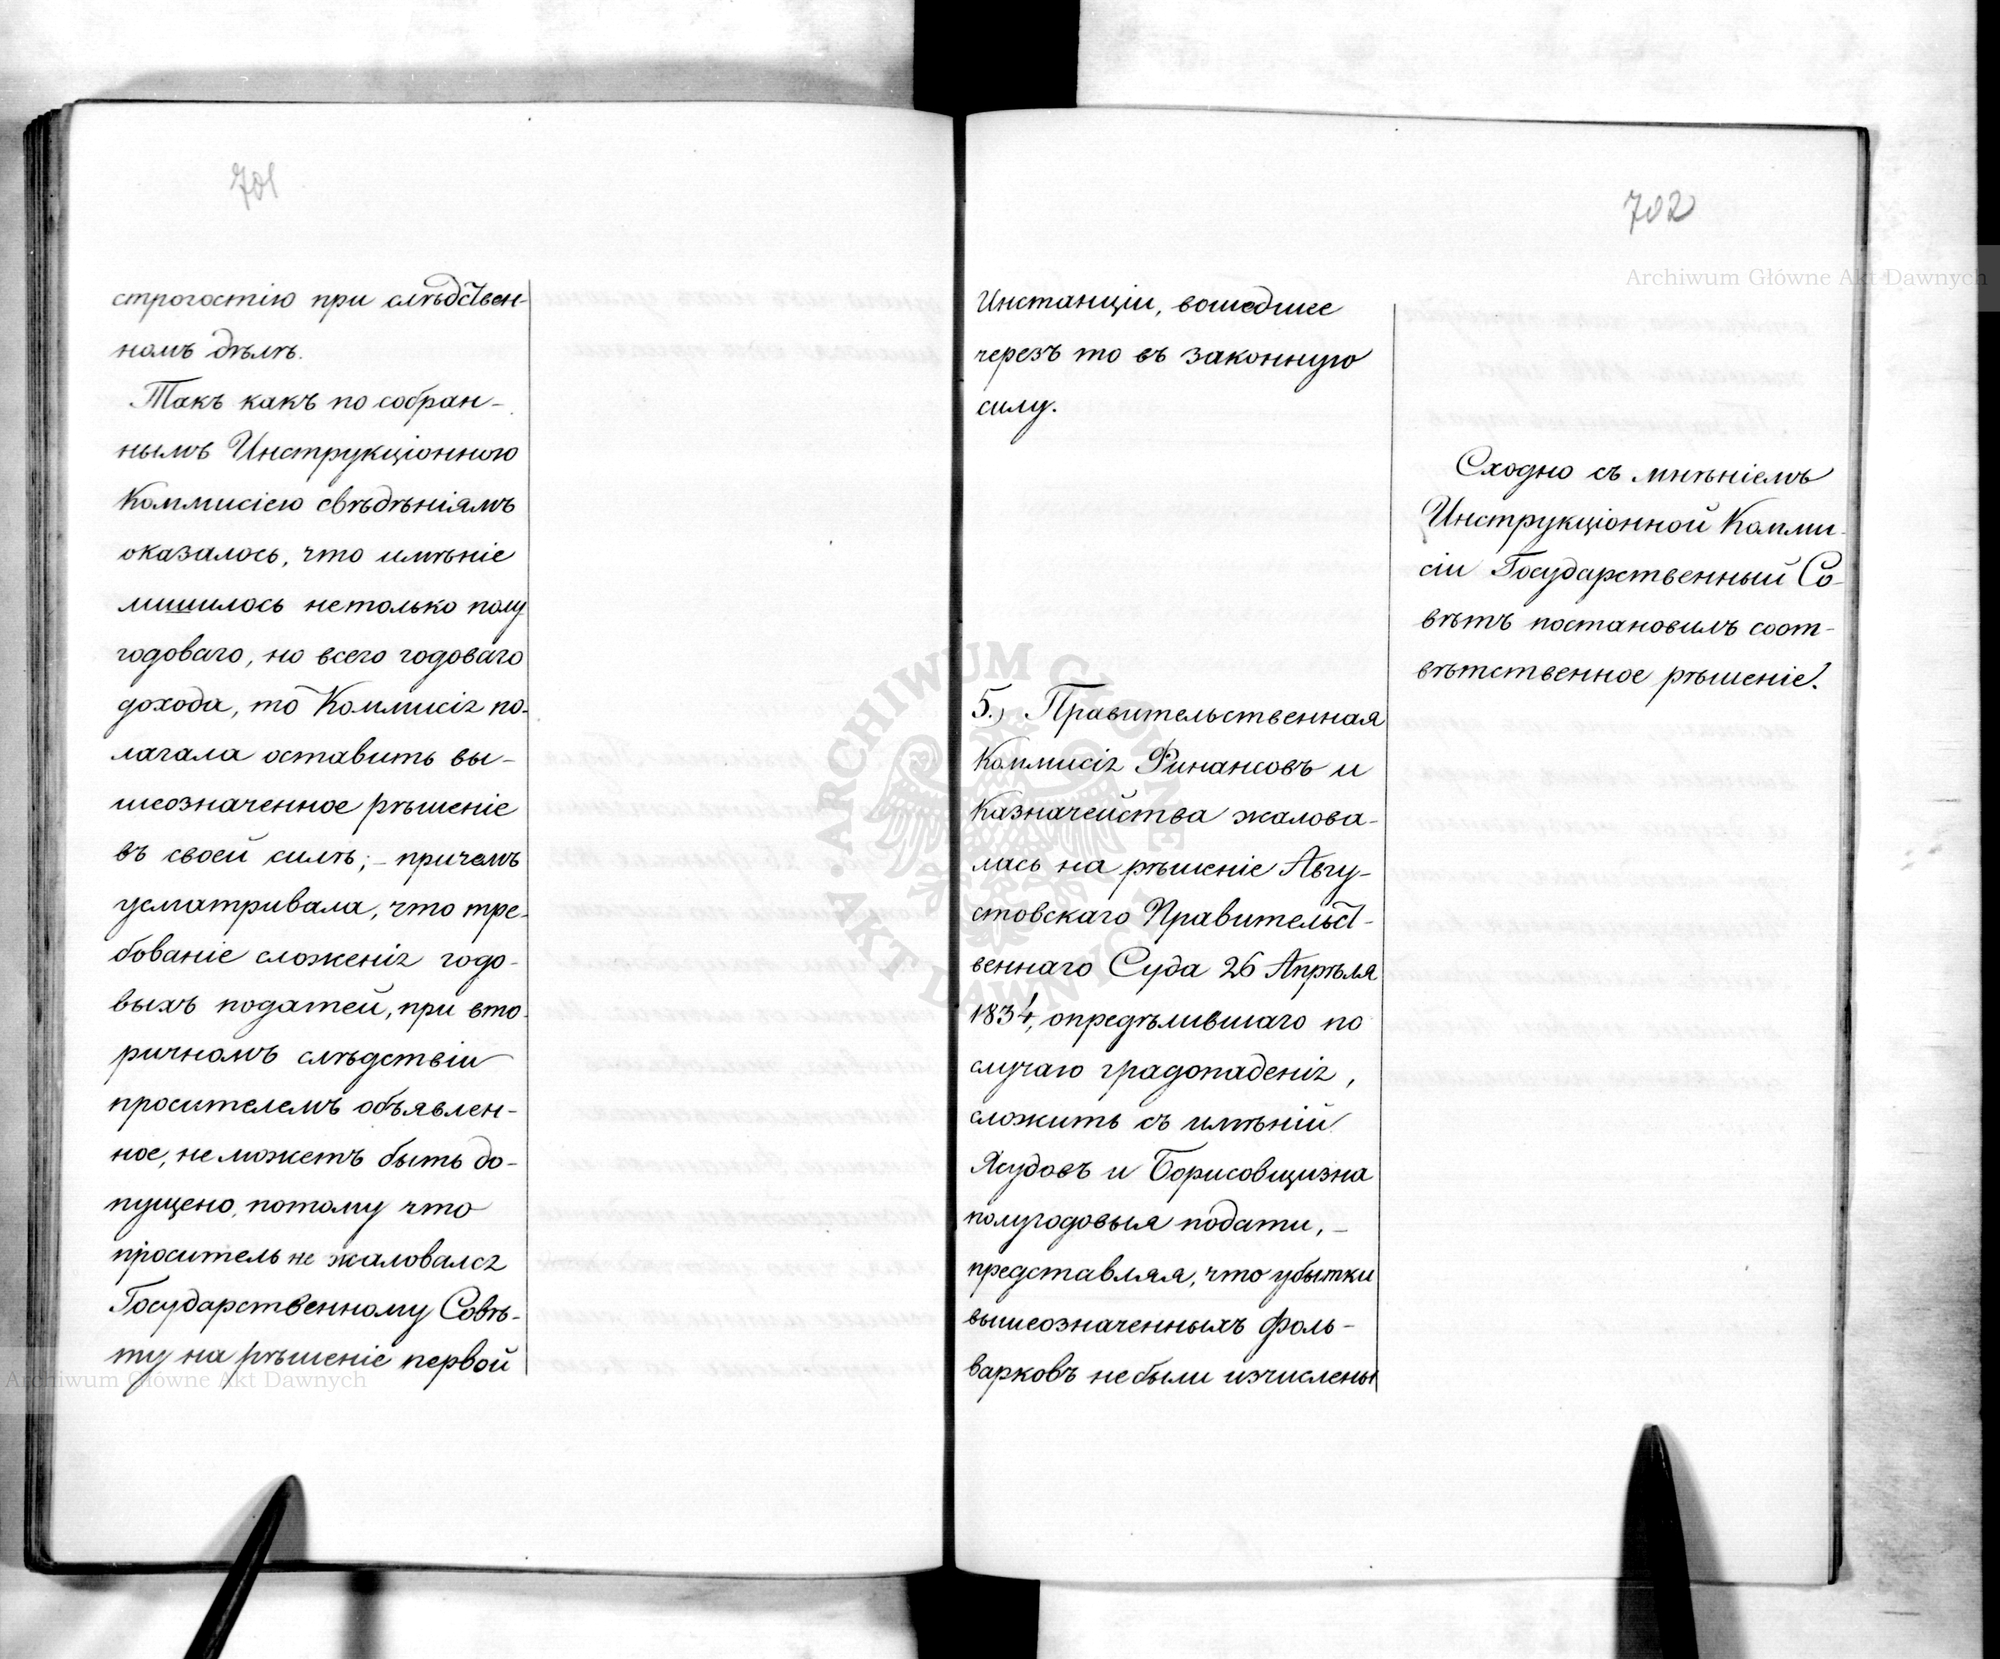 701
строгостію при слѣдствен-
номъ дѣлѣ.
Такъ какъ по собран-
нымъ Инструкціонною
Коммисіею свѣдѣніямъ
оказалось, что имѣніе
лишилось нетолько полу
годоваго, но всего годоваго
дохода, то Коммисія по-
лагала оставить вы-
шеозначенное рѣшеніе
въ своей силѣ; – причемъ
усматривала, что тре-
бованіе сложенія годо-
выхъ податей, при вто-
ричномъ слѣдствіи
просителемъ объявлен-
ное, не можетъ быть до-
пущено, потому что
проситель не жаловался
Государственному Совѣ-
ту на рѣшеніе первой
702
Инстанціи, вошедшее
черезъ то въ законную
силу.
5.) Правительственная
Коммисія Финансовъ и
Казначейства жалова-
лась на рѣшеніе Авгу-
стовскаго Правительст-
веннаго Суда 26 Апрѣля
1834, опредѣлившаго по
случаю градопаденія,
сложить съ имѣній
Ясудовъ и Борисовщизна
полугодовыя подати, –
представляя, что убытки
вышеозначенныхъ фоль-
варковъ не были изчислены
Сходно съ мнѣніемъ
Инструкціонной Комми-
сіи Государственный Со-
вѣтъ постановилъ соот-
вѣтственное рѣшеніе.
Archiwum Główne Akt Dawnych
Archiwum Główne Akt Dawnych
ARCHIWUM GŁÓWNE AKT DAWNYCH